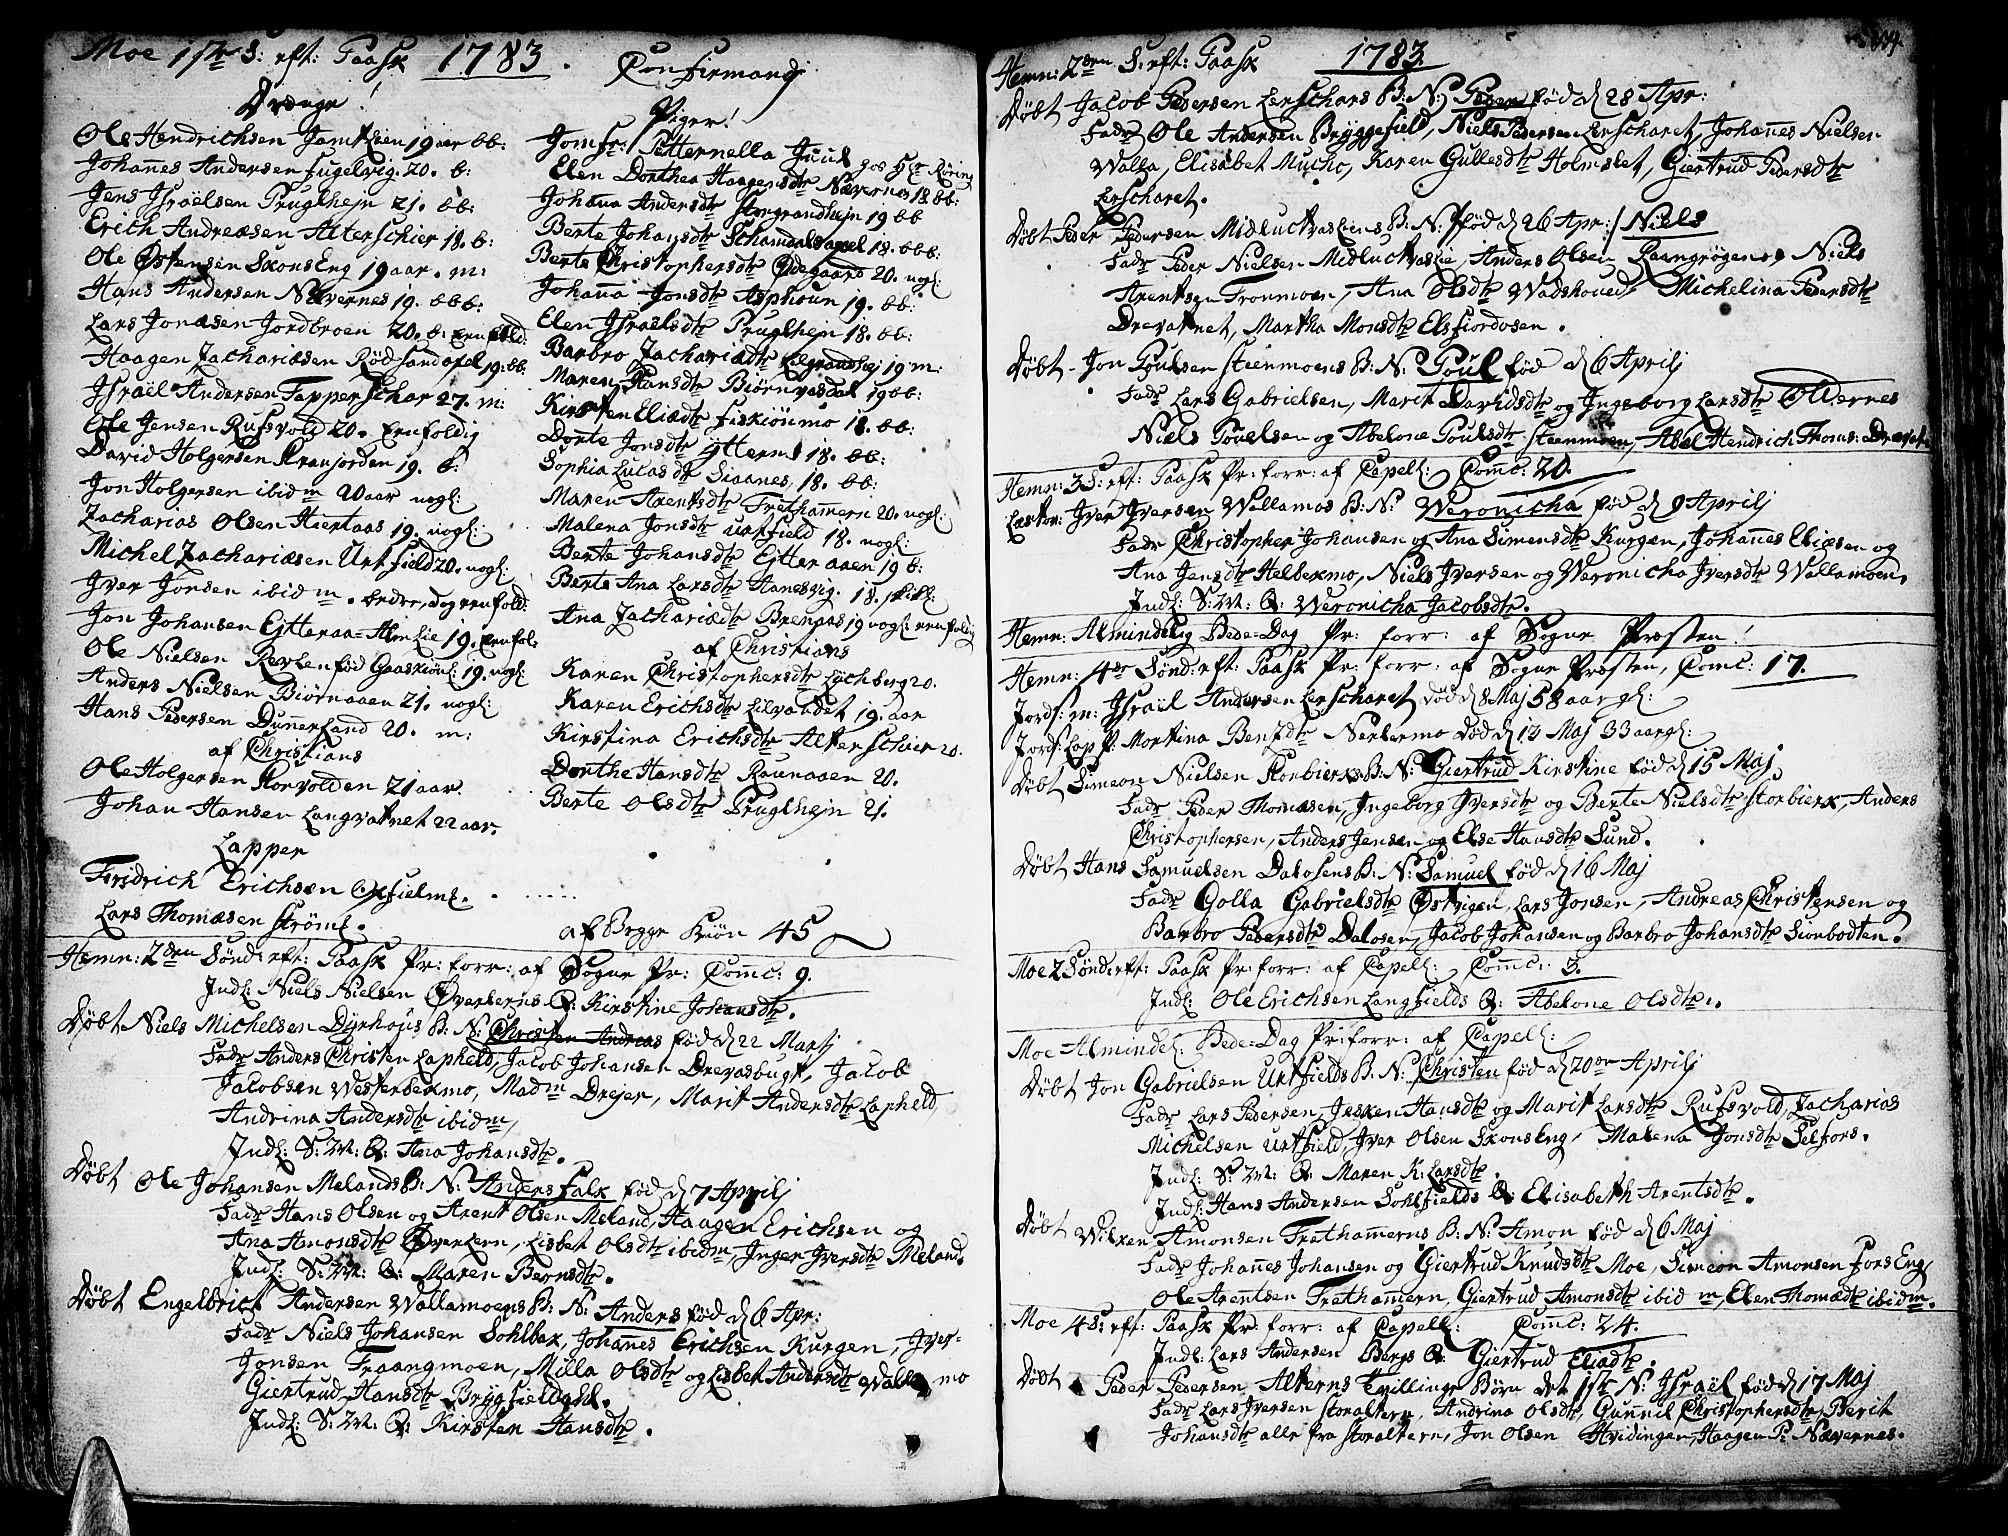 Moe 1ste S: eft: Paask 1783. Confirmandj
Drænge!
Ole Hendrichsen Jamtlien 19 aar bb:
Johanes Andersen fugelvig. 20. b:
Jens Jsraëlsen Pruglhejn 21. bb:
Erich Andreæsen Alterschier 18. b:
Ole Østensen SkonsEng 19 aar. m:
Hans Andersen Nævernes 19. bbb:
Lars Jonæsen Jordbroen 20. b: Eenfold:
Haagen Zachariæsen Rødsandopel 19. bb.
Jsraël Andersen Tapperschar 27. m:
Ole Jensen Rufsvold 20. Eenfoldig
David Holgersen Kranjorden 19. b:
Jon Holgersen ibidm 20 aar nogl:
Zacharias Olsen Hiertaas 19. nogl:
Michel Zachariæsen Urtfield 20. nogl:
Jver Jonsen ibidm. bedre, dog eenfold:
Jon Johansen Eitteraa=Almlie 19. Eenfol:
Ole Nielsen Revlen fød Gaaskiøn: 19. nogl:
Anders Nielsen Biørnaaen 21. nogl:
Hans Pedersen Dunerland 20. m:
af Christians
Ole Holgersen Storvolden 21 aar.
Johan Hansen Langvatnet 22 aar.
Lapper
Fredrich Erichsen Oxfielms.
Lars Thomæsen Strøml.
Piger!
Jomfr: Petternella Juul
Elen Dorthea Haagensdtr Nævernes 18 bb:
Johana Andersdtr Storgrandhejn 19 bb
Berte Johansdtr Schamdalsopel 18. bbb:
Berte Christophersdtr Ødegaard 20. nogl:
Johana Jonsdtr Asphoun 19. bb:
Elen Jsraelsdtr Pruglhejn 18. bb:
Barbro Zachariædtr Lilgrandhej 19 m:
Maren Hansdtr Biørnvasdal 19 bb:
Kirsten Eliædtr Fiskiønmo 18. bb:
Dorte Jonsdtr Ytteren 18. bb:
Sophia Lucasdtr Sioanes. 18. bb:
Maren Arentsdtr Frethamern 20. nogl:
Malena Jonsdtr Urtfield 18. nogl:
Berte Johansdtr Eitteraaen 19 b:
Berte Ana Larsdtr Hanesvig: 18.
Ana Zachariædtr Brennaas 19 nogl: eenfoldig
af Christians
Karen Christophersdtr Lychberg 20.
Karen Erichsdtr Lilvaadet 19. aar
Kirstina Erichsdtr Alterschier 20.
Dorthe Hansdtr Raunaaen 20.
Berte Olsdtr Pruglhejn 21.
af Begge Kiøn 45
Hemn: 2den Sønd: eft: Paask Pr: forr: af Sogne Pr: Com̃c: 9.
Jndl: Niels Nielsen Øverlerns Q: Kirstine Johansdtr.
Døbt Niels Michelsen Dyrhous B: N: Christen Andreas fød d 22 Martj
Fadr Anders Christen Lapheld, Jacob Johansen Drevasbugt, Jacob
Jacobsen Westerbekmo, Madm Drejer, Marit Andersdtr Lapheld,
Andrina Andersdtr ibidm,
Jndl: S: M: Q: Ana Johansdtr.
Døbt Ole Johansen Melands B: N: Anders Falk fød d 7 Aprilj
Fadr Hans Olsen og Arent Olsen Meland, Haagen Erichsen og
Ana Amonsdtr Øverlern, Lisbet Olsdtr ibidm, Jnger Jversdtr Meland.
Jndl: S: M: Q: Maren Bernsdtr.
Døbt Engelbrict Andersen Wallamoens B: N: Anders fød d 6 Apr:
Fadr Niels Johansen Sohlbak, Johanes Erichsen Kurgen, Jver
Jonsen Fraangmoen, Milla Olsdtr og Lisbet Andersdtr Wallamo
Giertrud Hansdtr Brygfieldahl.
Jndl: S: M: Q: Kirsten Hansdtr.
Hemn: 2den S: eft: Paask 1783.
Døbt Jacob Pedersen Lerschars B: N: Peder fød d 28 Apr:
Fadr Ole Andersen Bryggefield, Niels Pedersen Lerscharet, Johanes Nielsen
Walla, Elisabet Muchc, Karen Gullesdtr Holmslet, Giertrud Pedersdtr
Lerscharet.
Døbt Peder Pedersen Midluctvasliens B: N: fød d 26 Apr: / Niels
Fadr Peder Nielsen Midluctvaslie, Anders Olsen Raangrøgene, Niels
Arentsen Tronmoen, Ana Olsdtr Wadshoued, Michelina Pedersdtr
Drevatnet, Martha Monsdtr Elsfiordosen.
Døbt Jon Poulsen Steenmoens B: N: Poul fød d 6 Aprilj
Fadr Lars Gabrielsen, Marit Davidsdtr og Jngeborg Larsdtr Oldernes
Niels Pouelsen og Abelone Poulsdtr Steenmoen, Abel Hendrich Thoms: Drevatn
Hemn: 3 S: eft: Paask Pr: forr: af Capell: Com̃c: 20.
Læstor: Jver Jversen Wallamos B: N: Weronicha fød d 9 Aprilj
Fadr Christopher Johansen og Ana Simensdtr Kurgen, Johanes Eliæsen og
Ana Jensdtr Helbekmo, Niels Jversen og Weronicha Jversdtr Wallamoen.
Jndl: S: M: Q: Weronicha Jacobsdtr.
Hemn: Almindelig Bede=Dag Pr: forr: af Sogne Prosten!
Hemn: 4de Sønd: eft: Paask Pr: forr: af Sogne Prosten, Com̃c: 17.
Jords: m: Jsraël Andersen Lerscharet død d 8 Maj 58 aar gl:
Jords: Lap P: Mortina Bentzdtr Nerlermo død d 13 Maj 33 aargl:
Døbt Simeon Nielsen Storbierks B: N: Giertrud Kirstine fød d 15 Maj
Fadr Peder Thomæsen, Jngeborg Jversdtr og Berte Nielsdtr Storbierk, Anders
Christophersen, Anders Jensen og Else Hansdtr Sund.
Døbt Hans Samuelsen Dalosens B: N: Samuel fød d 16 Maj
Fadr Golla Gabrielsdtr Østvigen, Lars Jonsen, Andreas Christensen og
Barbro Pedersdtr Dalosen, Jacob Johansen og Barbro Johansdtr Sionbodten.
Moe 2 Sønd: eft: Paask Pr: forr: af Capell: Com̃c: 3.
Jndl: Ole Erichsen Langfields Q: Abelone Olsdtr.
Moe Almindel: Bede=Dag Pr: forr: af Capell:
Døbt Jon Gabrielsen Urtfields B: N: Christen fød d 20de Aprilj
Fadr Lars Pedersen, Jesken Hansdtr og Marit Larsdtr Rufsvold, Zacharias
Michelsen Urtfield, Jver Olsen SkonsEng, Malena Jonsdtr Selfors.
Jndl: S: M: Q: Maren K: Larsdtr.
Jndl: Hans Andersen Sohlfields Q: Elisabeth Arentsdtr.
Døbt Wilken Amonsen Frethamerns B: N: Amon fød d 6 Maj
Fadr Johanes Johansen og Giertrud Knudsdtr Moe, Simeon Amonsen ForsEng
Ole Arentsen Frethamern, Giertrud Amonsdtr ibidm, Elen Thomædtr ibidm.
Moe 4 S: eft: Paask Pr: forr: af Capell: Com̃c: 24.
Jndl: Lars Andersen Bergs Q: Giertrud Eliadtr.
Døbt Peder Pedersen Alterns Tvillinge Børn det 1ste N: Jsraël fød d 17 Maj
Fadr Lars Jversen Storaltern, Andrina Olsdtr, Gunnil Christophersdtr, Berit
Johansdtr alle fra Storaltern, Jon Olsen Hvidingen, Haagen P: Nævernes.